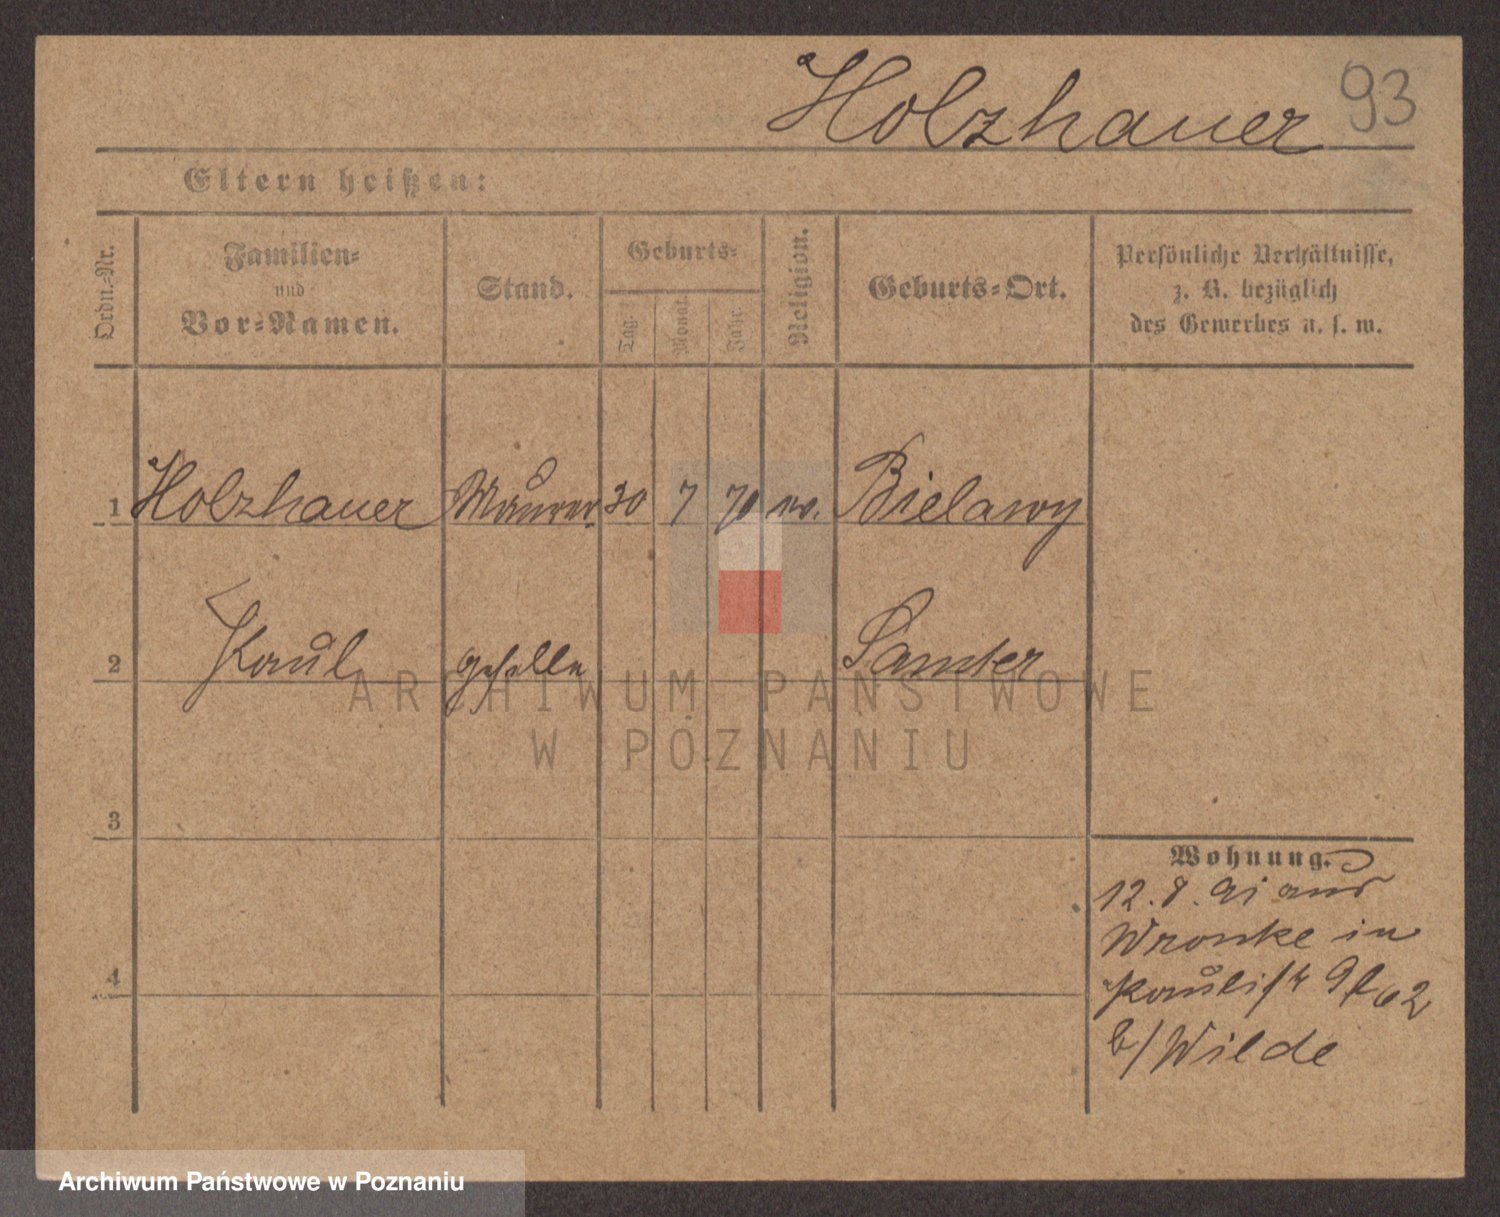 Holzhauer 93
Eltern heißen:
Ordn.-Nr.
Familien-
und
Vor-Namen.
Stand.
Geburts-
Tag.
Monat.
Jahr.
Religion.
Geburts-Ort.
Persönliche Verhältnisse,
z. B. bezüglich
des Gewerbes u. s. w.
1 Holzhauer Maurer 30 7 70 Bielawy
2 Paul geselle Samter
3
4
Wohnung.
12. 8. 91 aus
Wronke in
Paulistr
b/Wilde
ARCHIWUM PAŃSTWOWE
W POZNANIU
Archiwum Państwowe w Poznaniu